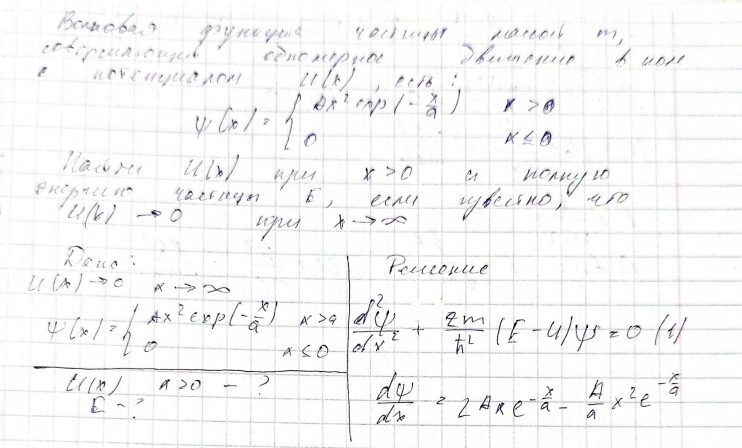 Волновая функция частицы массой m,
совершающей одномерное движение в поле
с потенциалом U(x), есть:
ψ(x) = { Ax² exp(-x/a) x > 0
0 x ≤ 0
Найти U(x) при x > 0 и полную
энергию частицы E, если известно, что
U(x) → 0 при x → ∞
Дано:
U(x) → 0 x → ∞
ψ(x) = { Ax² exp(-x/a) x > 0
0 x ≤ 0
U(x) x > 0 - ?
E - ?
Решение
d²ψ/dx² + 2m/ħ² (E - U)ψ = 0 (1)
dψ/dx = 2Axe^(-x/a) - A/a x²e^(-x/a)